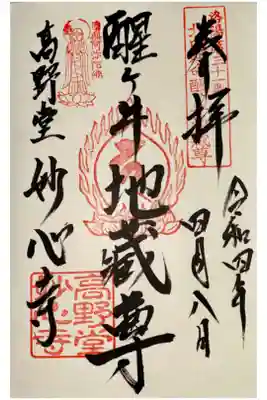 奉拝
令和四年
四月八日
醒ヶ井地蔵尊
高野堂 妙心寺
高野堂
妙心寺